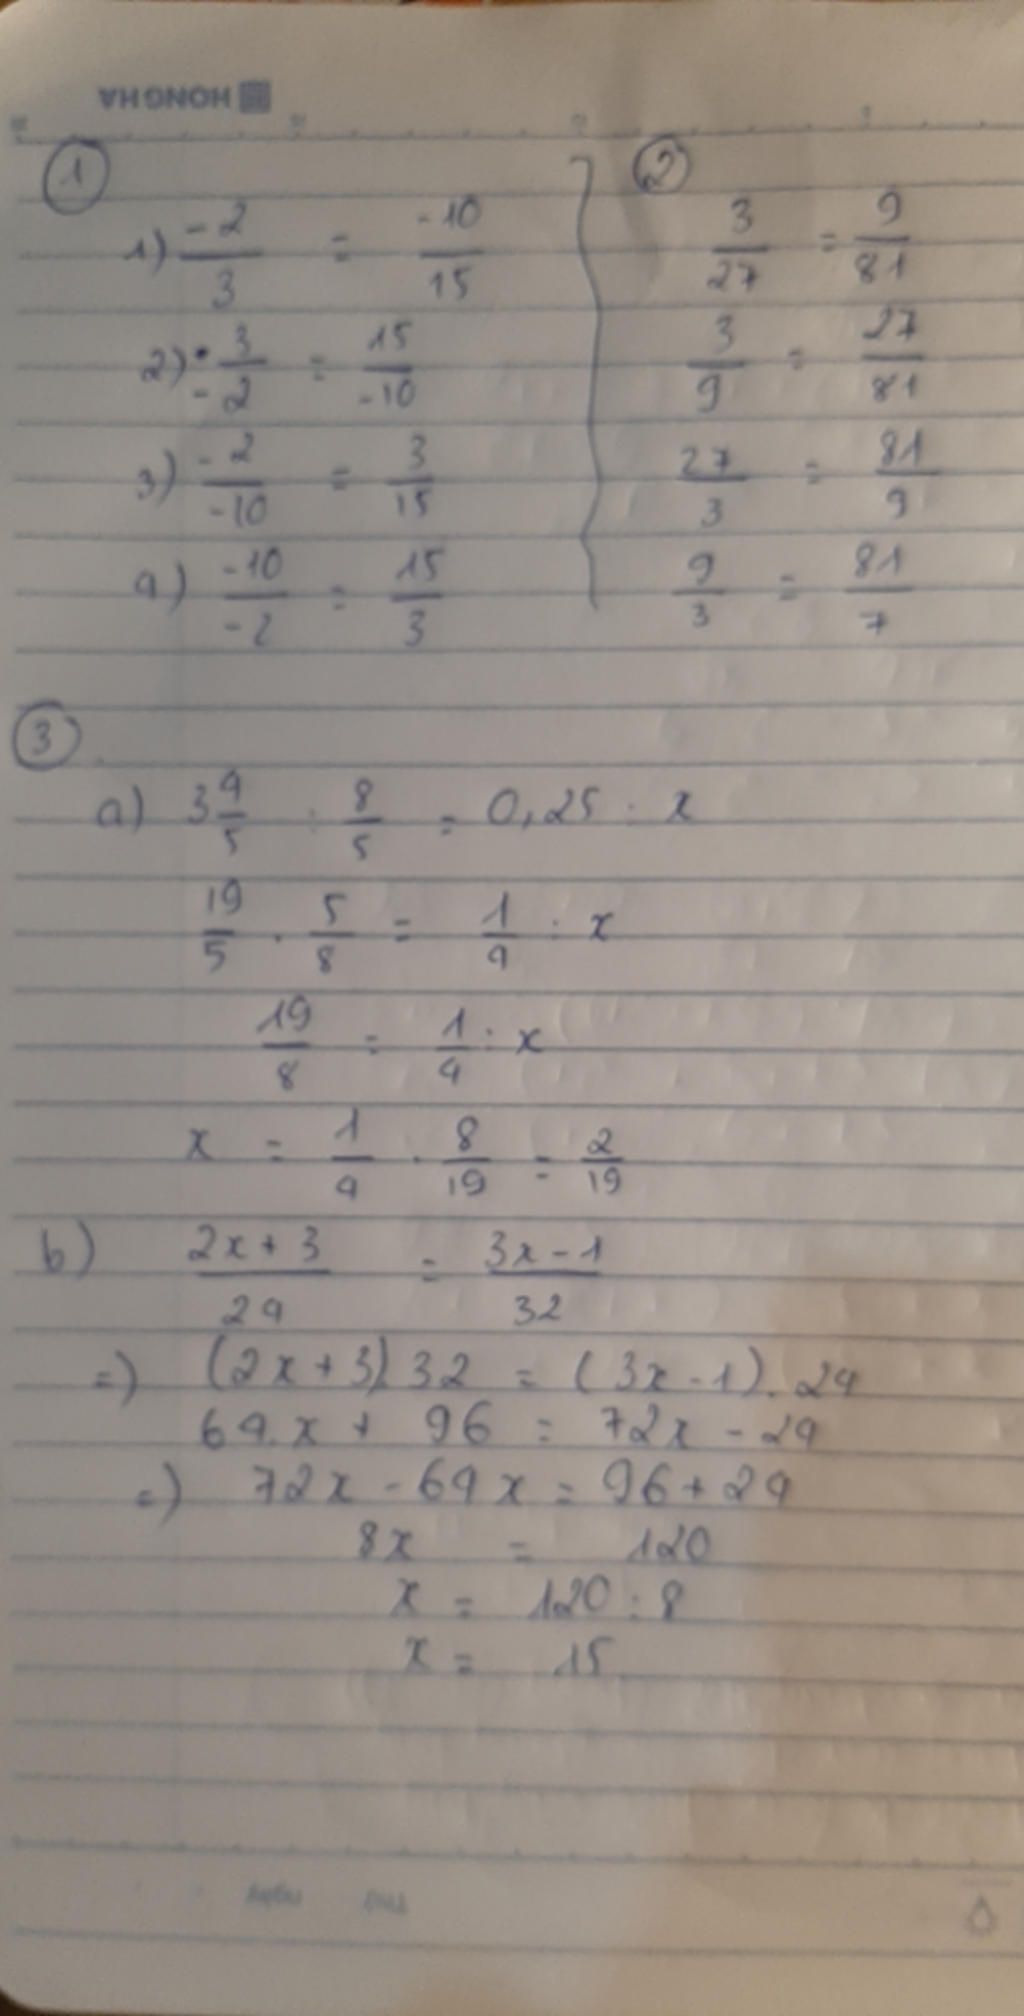 HONGHA
① ②
1) -2/3 = -10/15
2) 3/-2 = 15/-10
3) -2/-10 = 3/15
4) -10/-2 = 15/3
3/27 = 9/81
3/9 = 27/81
27/3 = 81/9
9/3 = 81/7
③
a) 3 4/5 : 8/5 = 0,25 : x
19/5 . 5/8 = 1/4 : x
19/8 = 1/4 : x
x = 1/4 . 8/19 = 2/19
b) 2x + 3/24 = 3x - 1/32
=) (2x + 3) 32 = (3x - 1). 24
64.x + 96 = 72x - 24
=) 72x - 64x = 96 + 24
8x = 120
x = 120 : 8
x = 15